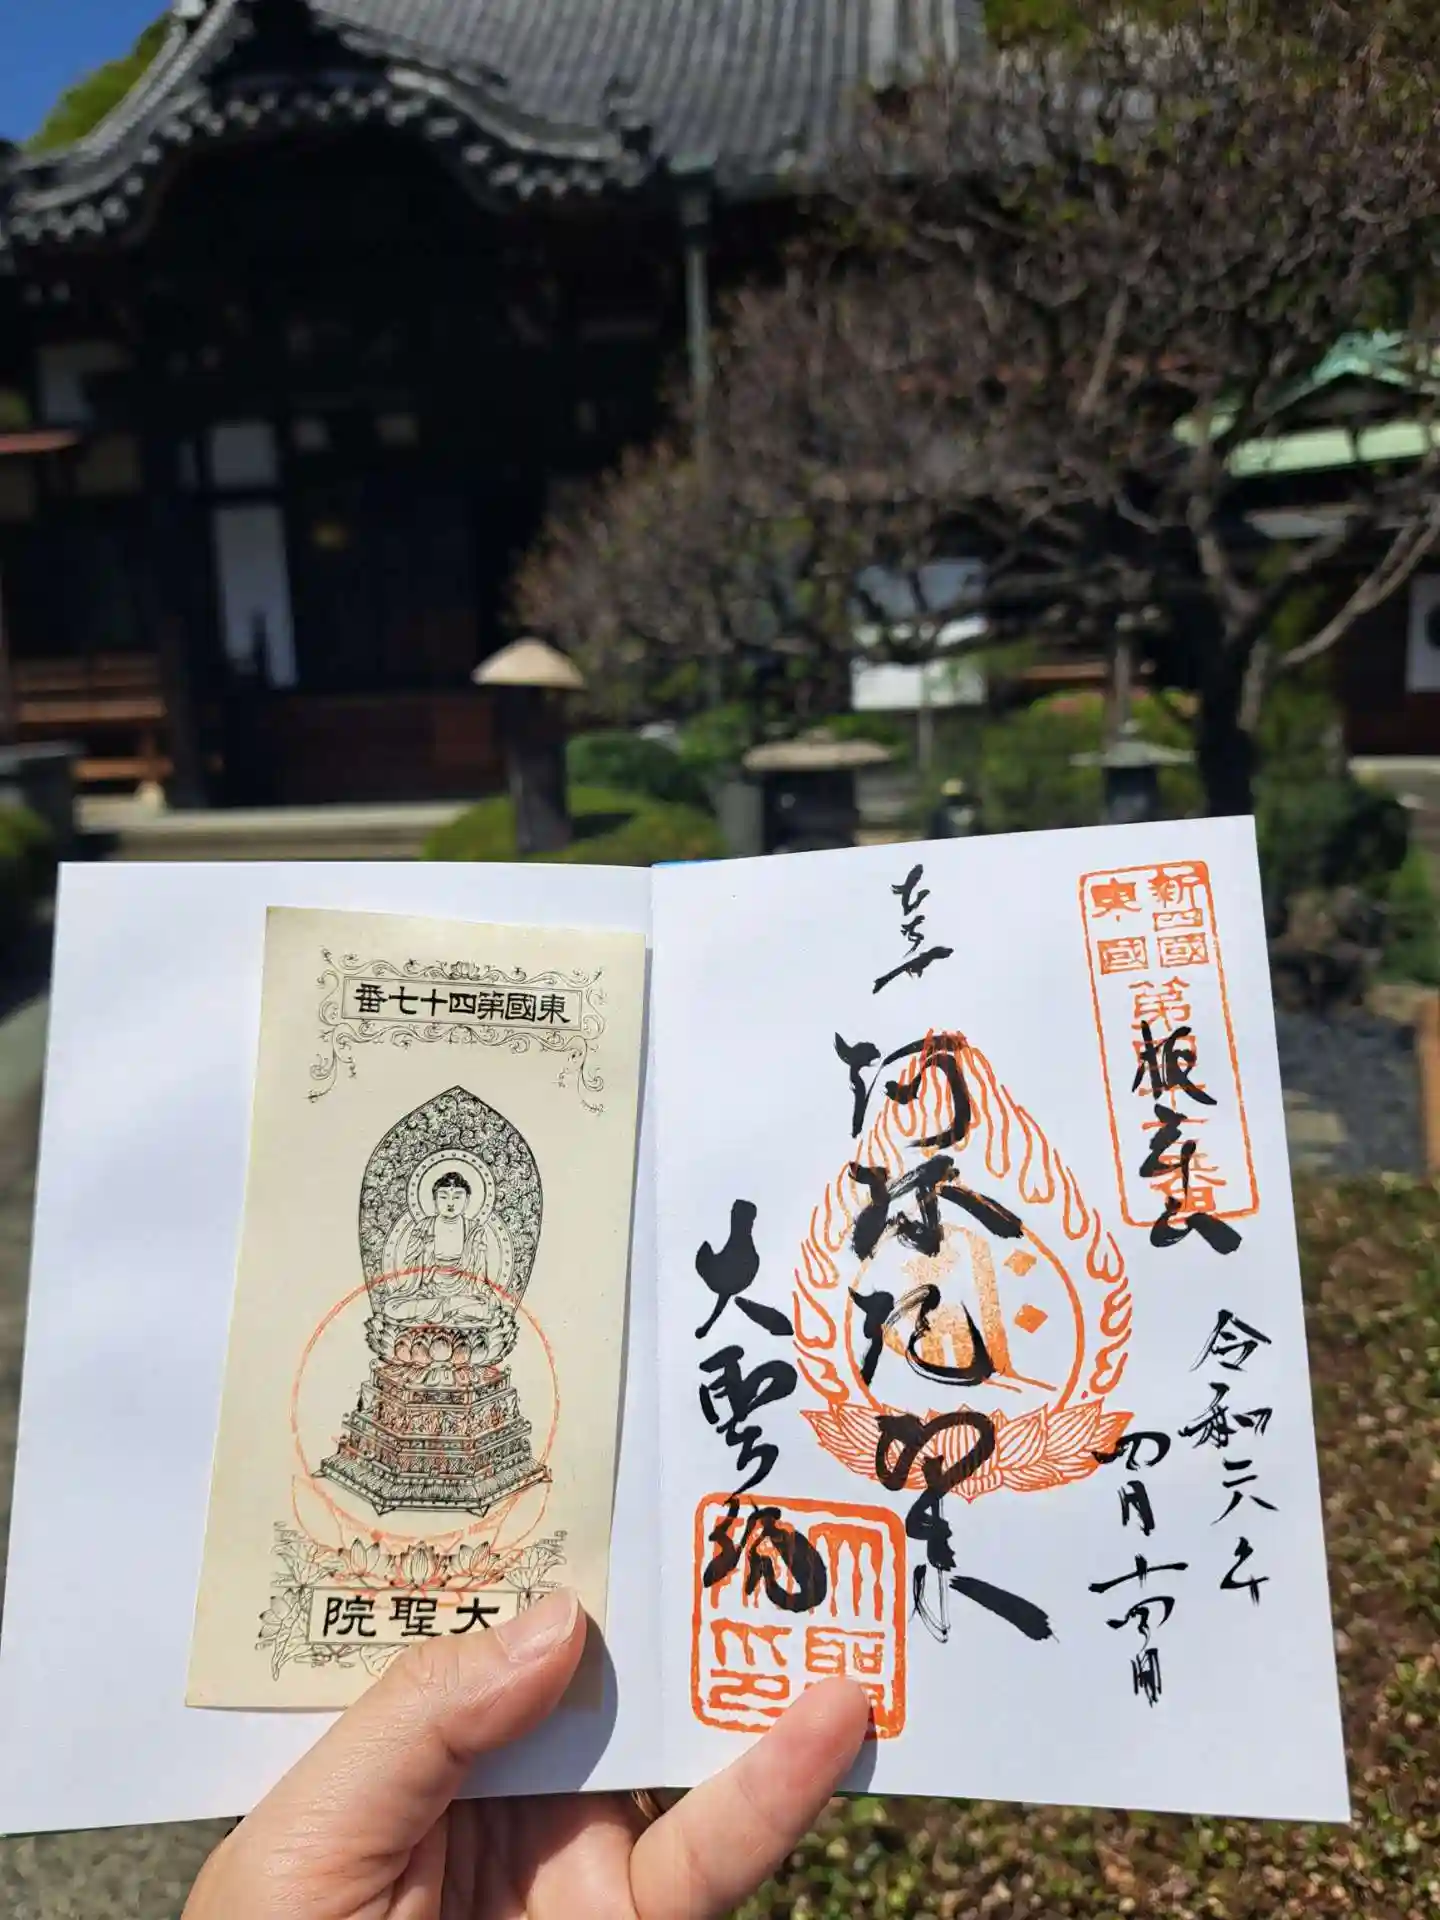 東國第四十七番
大聖院
新四國
東國
第四十七番
令和六年
四月十四日
阿弥陀如来
大聖院